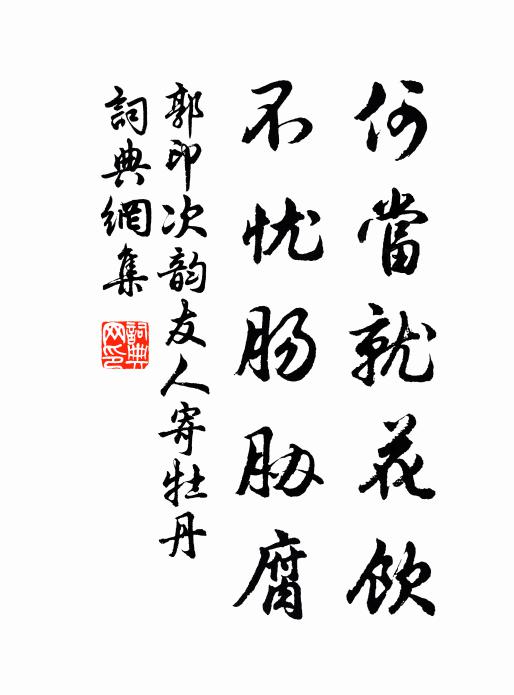 何當就花飲
不忧肠胁腐
郭印次韵友人寄牡丹
詞典網集
詞典网印